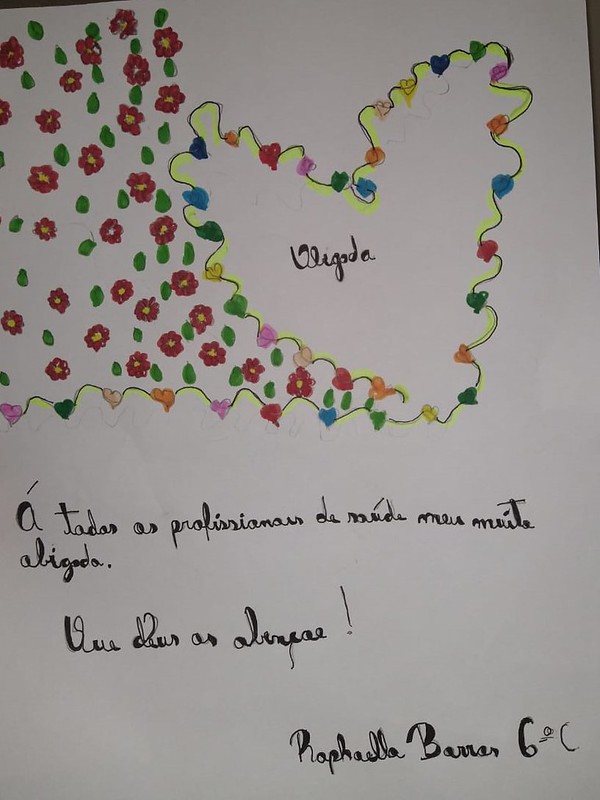 Obrigada
Á todos os profissionais de saúde meu muito
obrigada.
Que Deus os abençoe!
Raphaella Barros 6º C